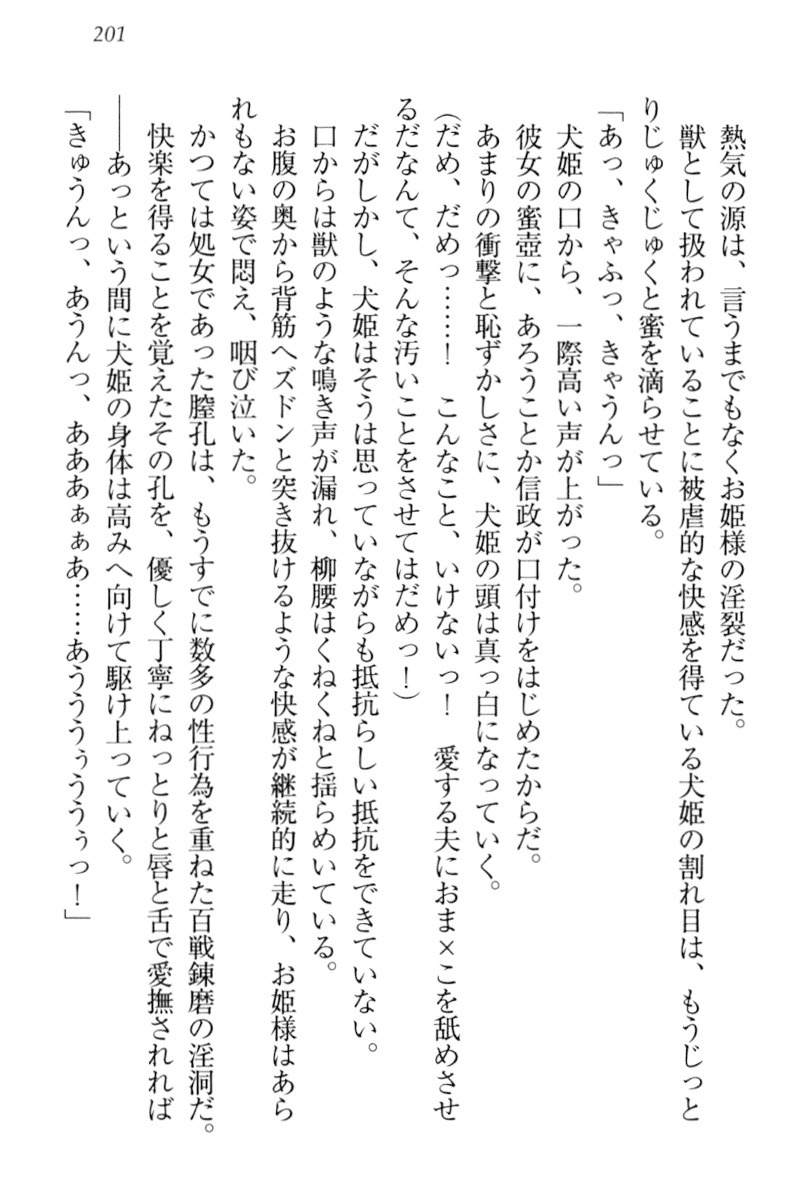 201
熱気の源は、言うまでもなくお姫様の淫裂だった。
獣として扱われていることに被虐的な快感を得ている犬姫の割れ目は、もうじっと
りじゅくじゅくと蜜を滴らせている。
「あっ、きゃふっ、きゃうんっ」
犬姫の口から、一際高い声が上がった。
彼女の蜜壺に、あろうことか信政が口付けをはじめたからだ。
あまりの衝撃と恥ずかしさに、犬姫の頭は真っ白になっていく。
(だめ、だめっ……！　こんなこと、いけないっ！　愛する夫におま×こを舐めさせ
るだなんて、そんな汚いことをさせてはだめっ！)
だがしかし、犬姫はそうは思っていながらも抵抗らしい抵抗をできていない。
口からは獣のような鳴き声が漏れ、柳腰はくねくねと揺らめいている。
お腹の奥から背筋へズドンと突き抜けるような快感が継続的に走り、お姫様はあら
れもない姿で悶え、咽び泣いた。
かつては処女であった膣孔は、もうすでに数多の性行為を重ねた百戦錬磨の淫洞だ。
快楽を得ることを覚えたその孔を、優しく丁寧にねっとりと唇と舌で愛撫されれば
――あっという間に犬姫の身体は高みへ向けて駆け上っていく。
「きゅうんっ、あうんっ、あああぁぁあ……あうううぅううぅっ！」